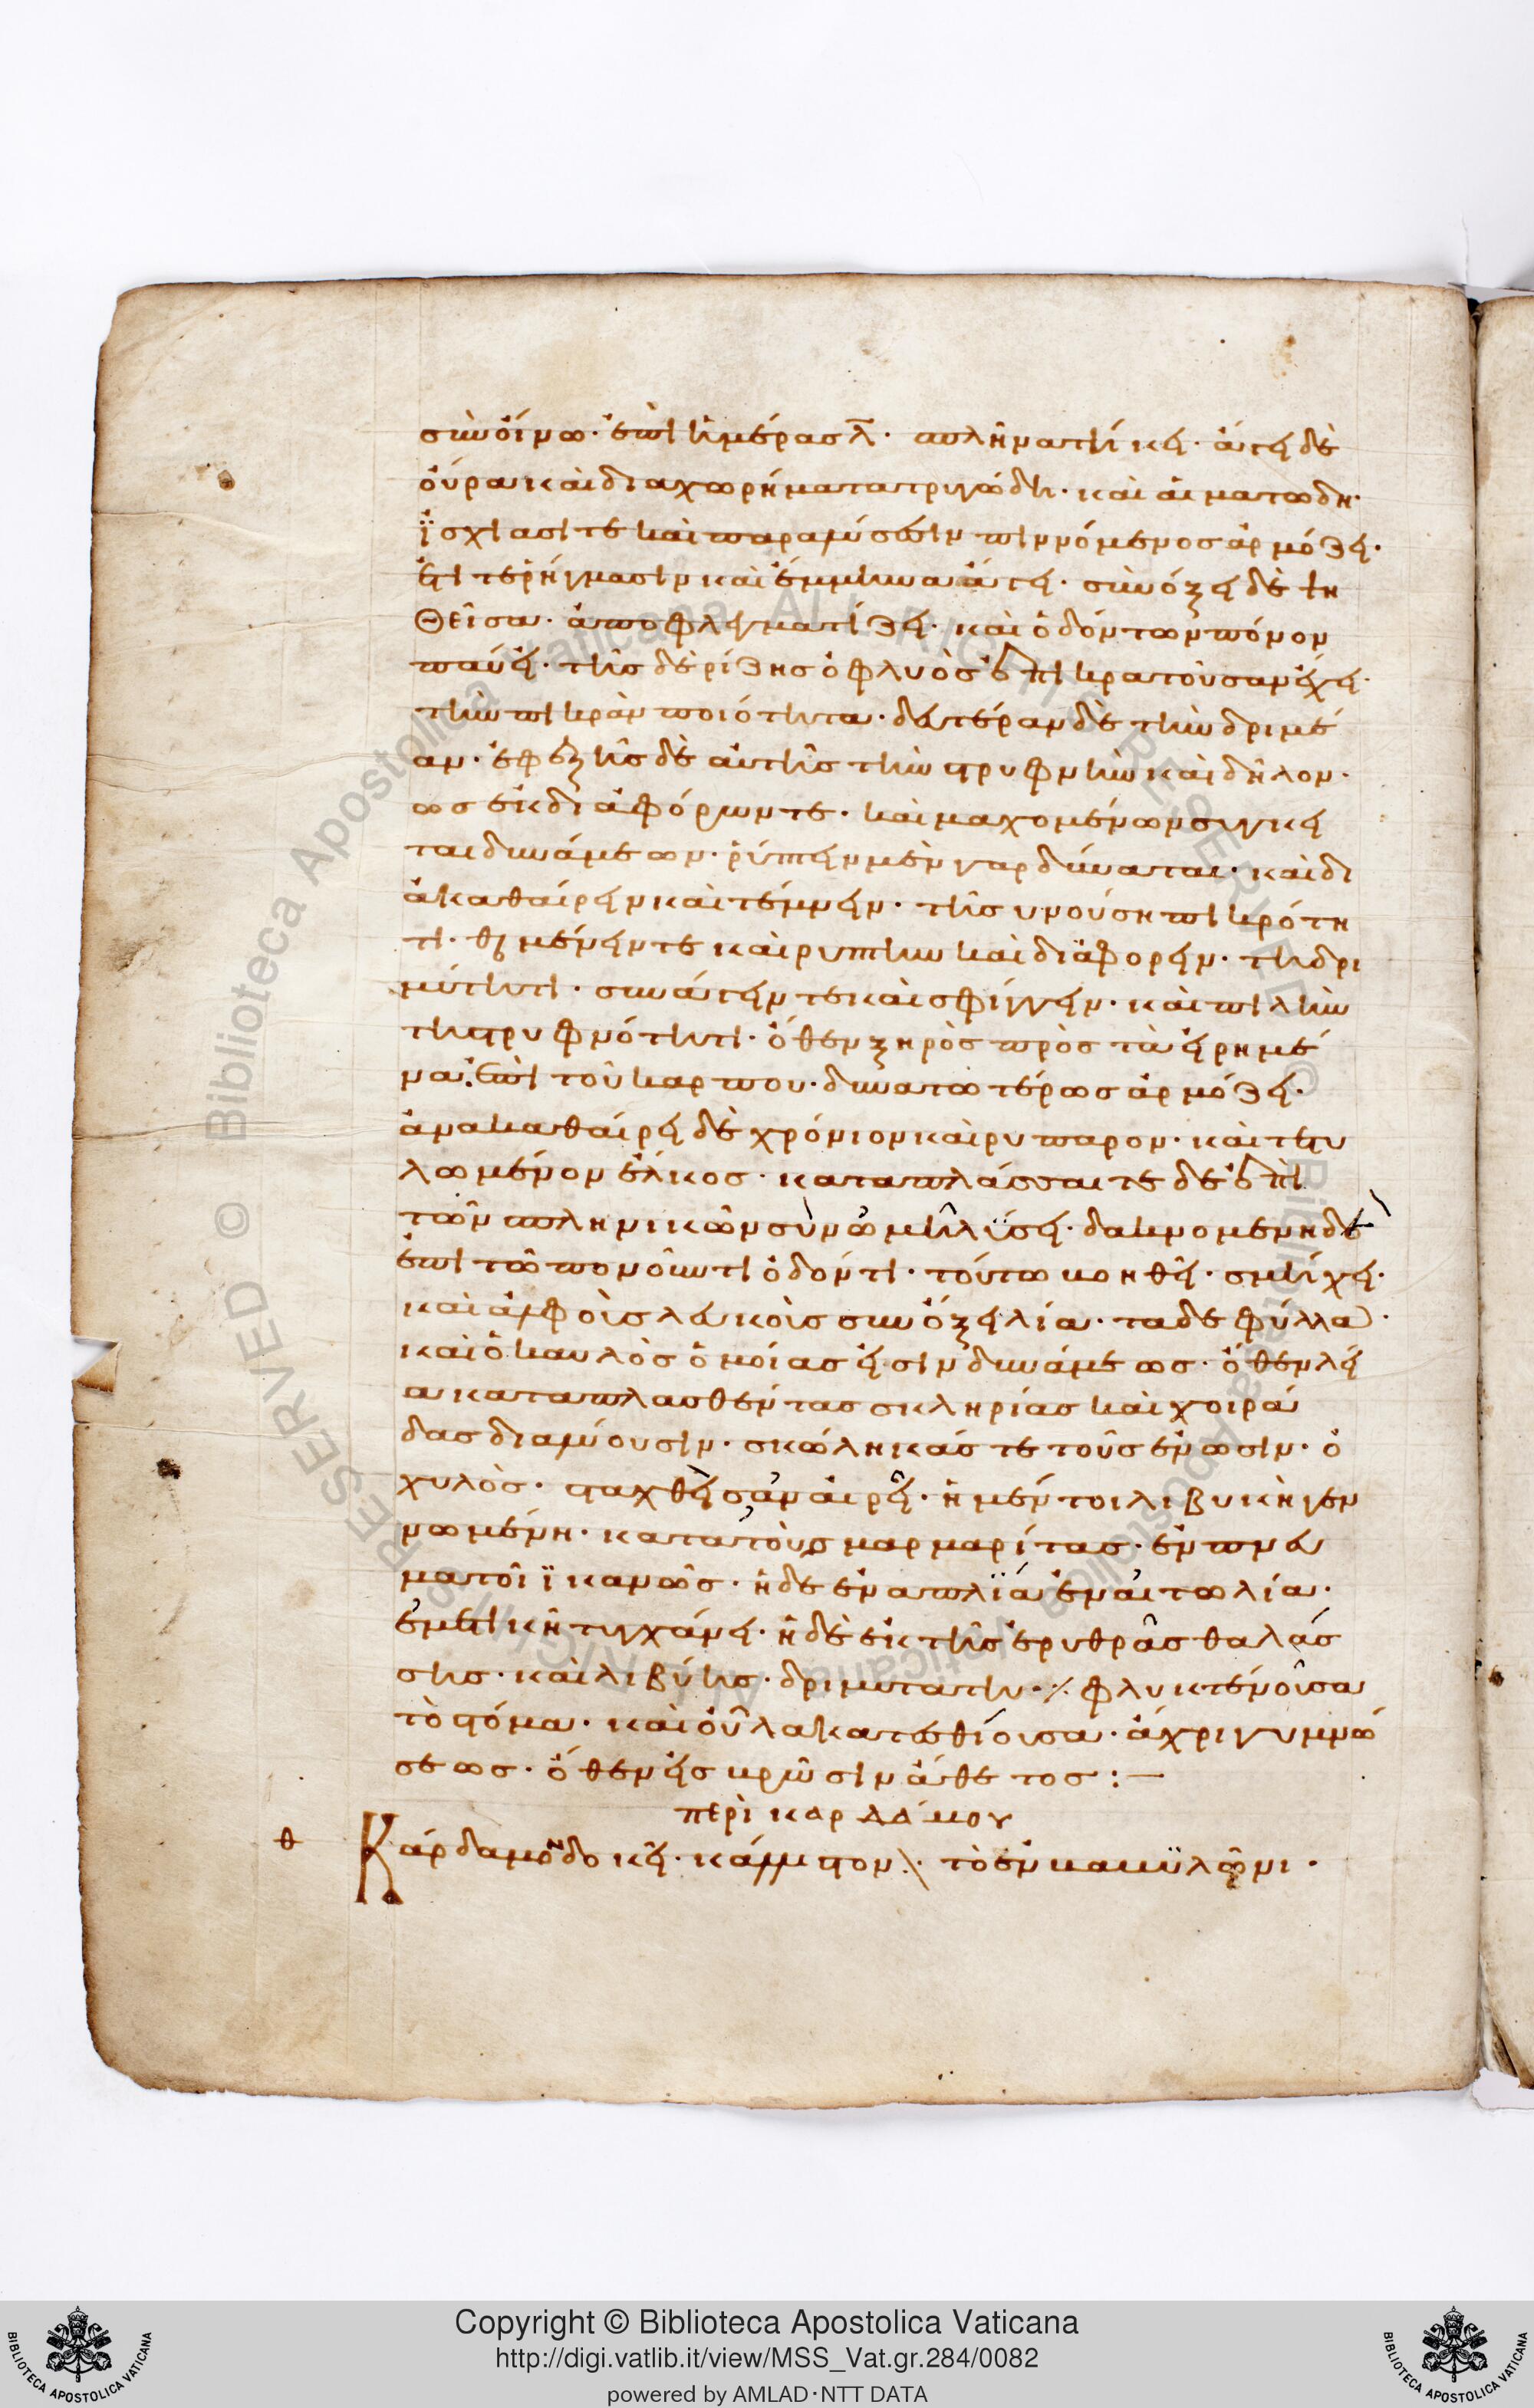 σὺν οἴνω· ἐπὶ ἡμέρας λ̅· σπλῆνα τήκει· ἄγει δὲ
οὖρα καὶ διαχωρήματα τρυγώδη· καὶ αἱματώδη·
ϊσχιάσι τε καὶ παραλύσεσιν πινόμενος ἁρμόζει·
ἔτι τε ῥήγμασιν καὶ ἔμμηνα ἄγει· σὺν ὄξει δὲ ἑψη
θεῖσα· ἀποφλεγματίζει· καὶ ὀδόντων πόνον
παύει· τῆς δὲ ρίζης ὁ φλυὸς ἐπικρατοῦσαν ἔχει·
τὴν πικρὰν ποιότητα· δευτέραν δὲ τὴν δριμεῖ
αν· ἐφεξῆς δὲ αὐτῆς τὴν στρυφνὴν καὶ δῆλον·
ὡς ἐκ διαφόρων τε· καὶ μαχομένων σύγκει
ται δυνάμεων· ῥύπτειν μὲν γὰρ δύναται· καὶ δι
ακαθαίρειν καὶ τέμνειν· τῆς ἐνούση πικρότη
τι· θερμαίνειν τε καὶ ρύπτην καὶ διαφορεῖν· τη δρι
μύτητι· συνάγειν τε καὶ σφίγγειν· καὶ πιλεῖν
τη στρυφνότητι· ὅθεν ξηρὸς πρὸς τὰ εἰρημέ
να· ἐπὶ τοῦ καρπου· δυνατωτέρως ἁρμόζει·
ἀνακαθαίρει δὲ χρόνιον καὶ ρυπαρον· καὶ τετυ
λωμένον ἕλκος· καταπλάσσαι τε δὲ ἐπὶ
τῶν σπληνικῶν σὺν ὠμῆ λύσει· δακνομένη δὲ
ἐπὶ τῶ πονοῦντι ὀδόντι· τούτω βοηθεῖ· σμήχει·
καὶ ἀλφοὺς λευκοὺς σὺν ὄξει λία· τα δε φύλλα·
καὶ ὁ καυλὸς ὁμοίας εἰσὶν δυνάμεως· ὅθεν λεῖ
α καταπλασθέντας σκληρίας καὶ χοιρά
δας διαλύουσιν· σκώληκάς τε τοὺς ἐν ὠσὶν· ὁ
χυλὸς· σταχθεὶς ἀναιρεῖ· ἡ μέντοι λιβυκὴ γεν
νωμένη· κατὰ τοὺς μαρμαρίτας· ἐμπνευ
ματοῖ ϊκανῶς· ἡ δὲ ἐν απλϊα ἐν αἰτωλία·
ἐμετικὴ τυγχάνει· ἡ δὲ ἐκ τῆς ἐρυθρᾶς θαλάσ
σης· καὶ λιβύης· δριμυτάτη· ⁒ φλυκτένοῦσα
τὸ στόμα· καὶ οὖλα κατεσθίουσα· ἄχρι γυμνώ
σεως· ὅθεν εἰς χρῆσιν ἄθετος :—
περὶ καρδάμου
θ Κάρδαμον δοκεῖ· κάλλιστον· τὸ ἐν βαβυλῶνι·